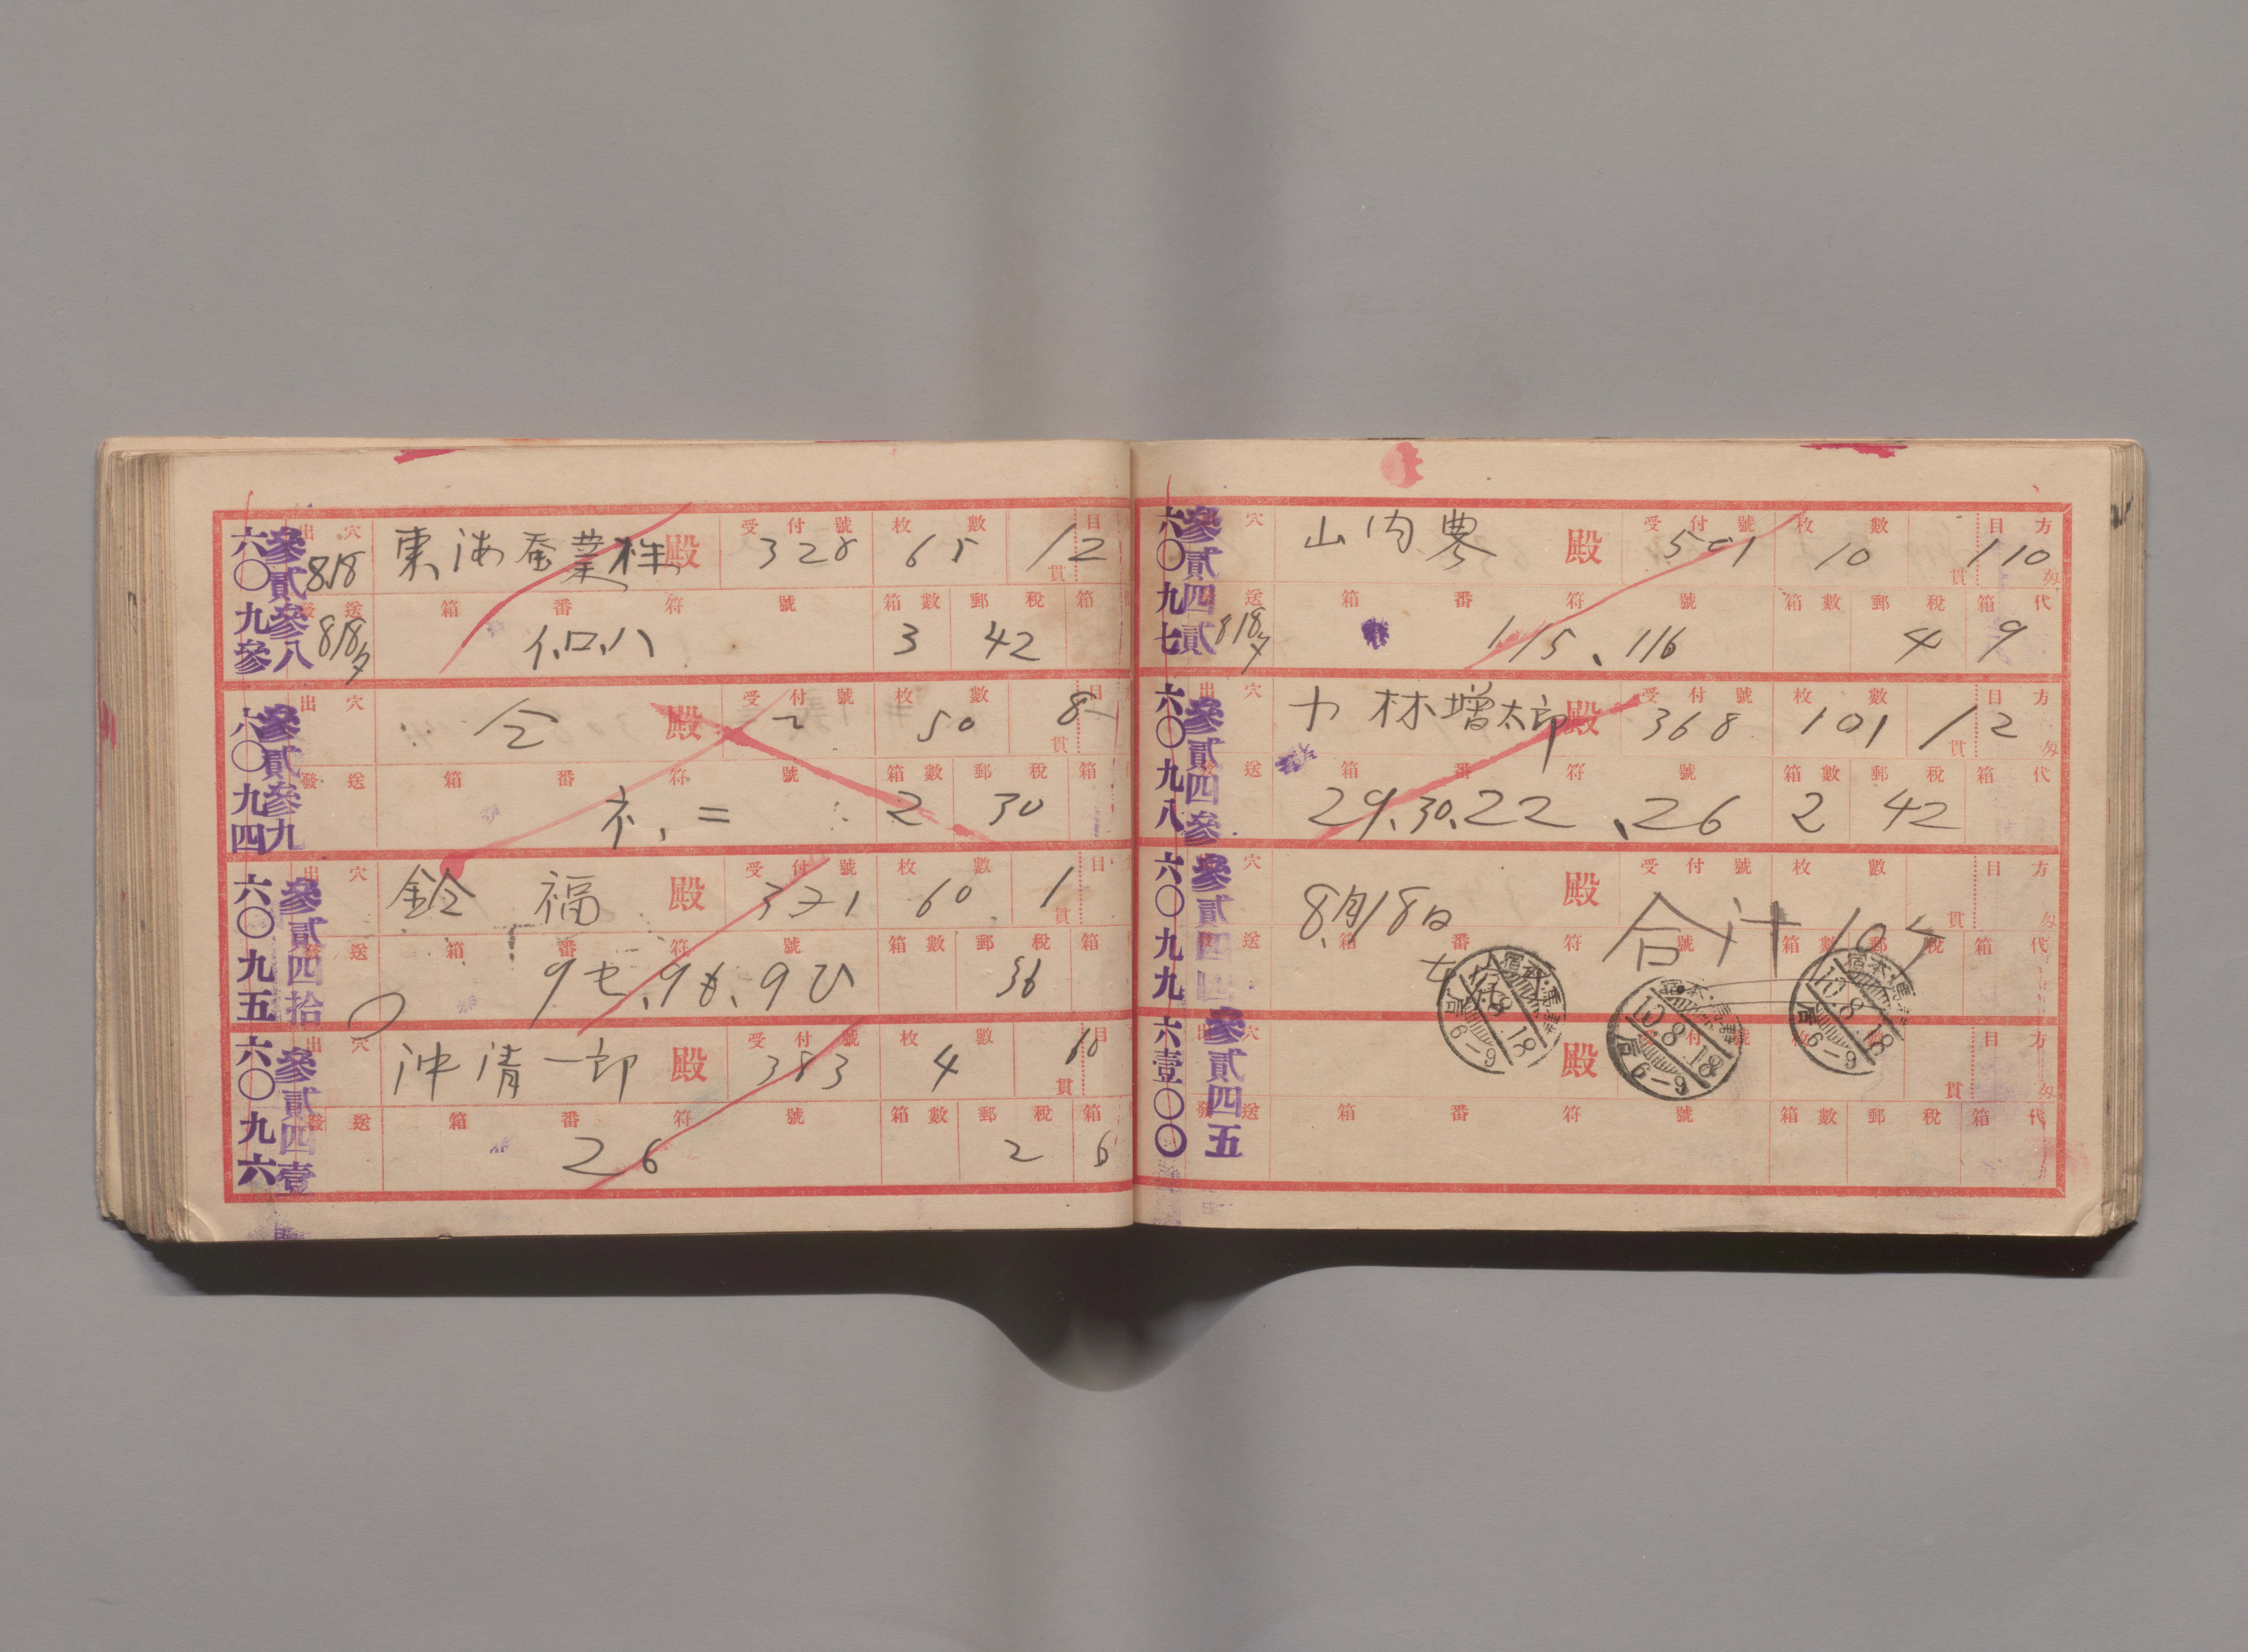 六〇九參
參貳參八
出穴
8/18
東海蚕業株殿
受付號
328
枚數
65
貫
12
目
發送
8/18夕
箱番符號
イ、ロ、ハ
箱數
3
郵稅
42
箱
六〇九四
參貳參九
出穴
仝
殿
受付號
枚數
50
貫
8
目
發送
箱番符號
ホ、ニ
箱數
2
郵稅
30
箱
六〇九五
參貳四拾
出穴
鈴福殿
受付號
331
枚數
60
1
貫
目
發送
箱番符號
9セ、9モ、9ヒ
箱數
郵稅
36
箱
六〇九六
參貳四壹
出穴
沖清一郎殿
受付號
383
枚數
4
貫
60
目
發送
箱番符號
26
箱數
郵稅
2
箱
6
六〇九七
參貳四貳
穴
山内農殿
受付號
501
枚數
10
貫
110
目方
匁
送
8/18夕
箱番符號
115、116
箱數
郵稅
4
箱代
9
六〇九八
參貳四參
出穴
林増太郎殿
受付號
368
枚數
101
貫
12
目方
匁
發送
箱番符號
29、30、22、26
箱數
2
郵稅
42
箱代
六〇九九
參貳四四
穴
8月18日
殿
受付號
枚數
貫
目方
匁
合計
送
箱番符號
箱數
郵稅
箱代
10.8.18
6-9
10.8.18
6-9
10.8.18
6-9
六壹〇〇
參貳四五
出穴
殿
號
數
貫
目方
匁
發送
箱番符號
箱數
郵稅
箱代